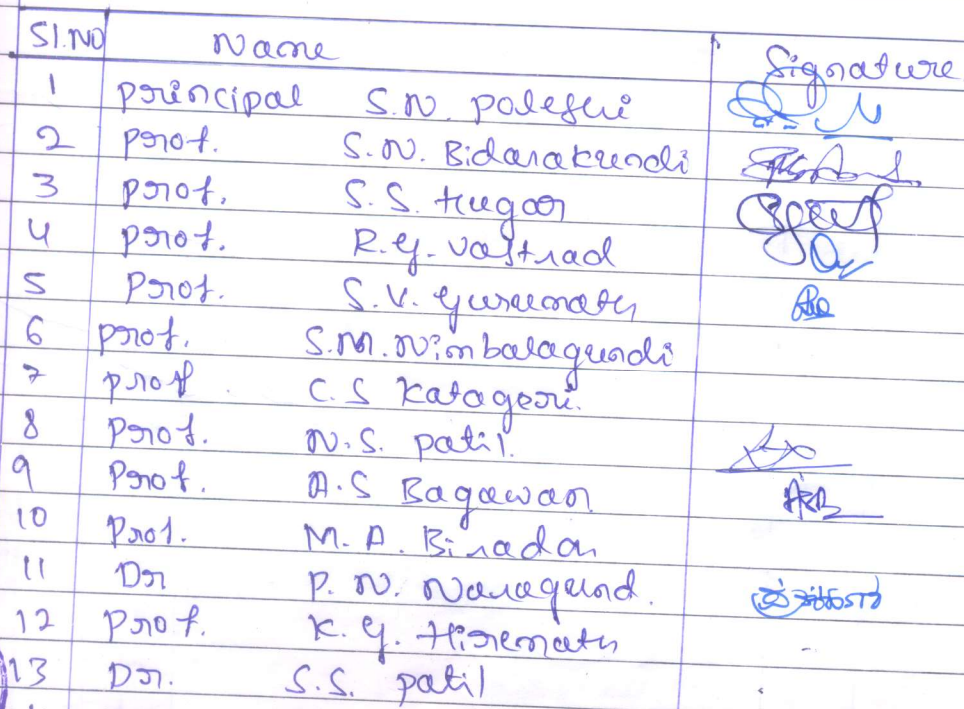 Sl.No Name Signature
1 principal S.N. poleshi
2 prof. S.N. Bidarakundi
3 prof. S.S. Hugar
4 prof. R.G. Vastrad
5 Prof. S.V. Gurumath
6 prof. S.M. Nimbalagundi
7 prof. C.S Katageri.
8 Prof. N.S. patil.
9 Prof. A.S Bagawan
10 Prof. M.A. Biradar
11 Dr P.N. Naragund.
12 Prof. K.G. Hiremath
13 Dr. S.S. patil